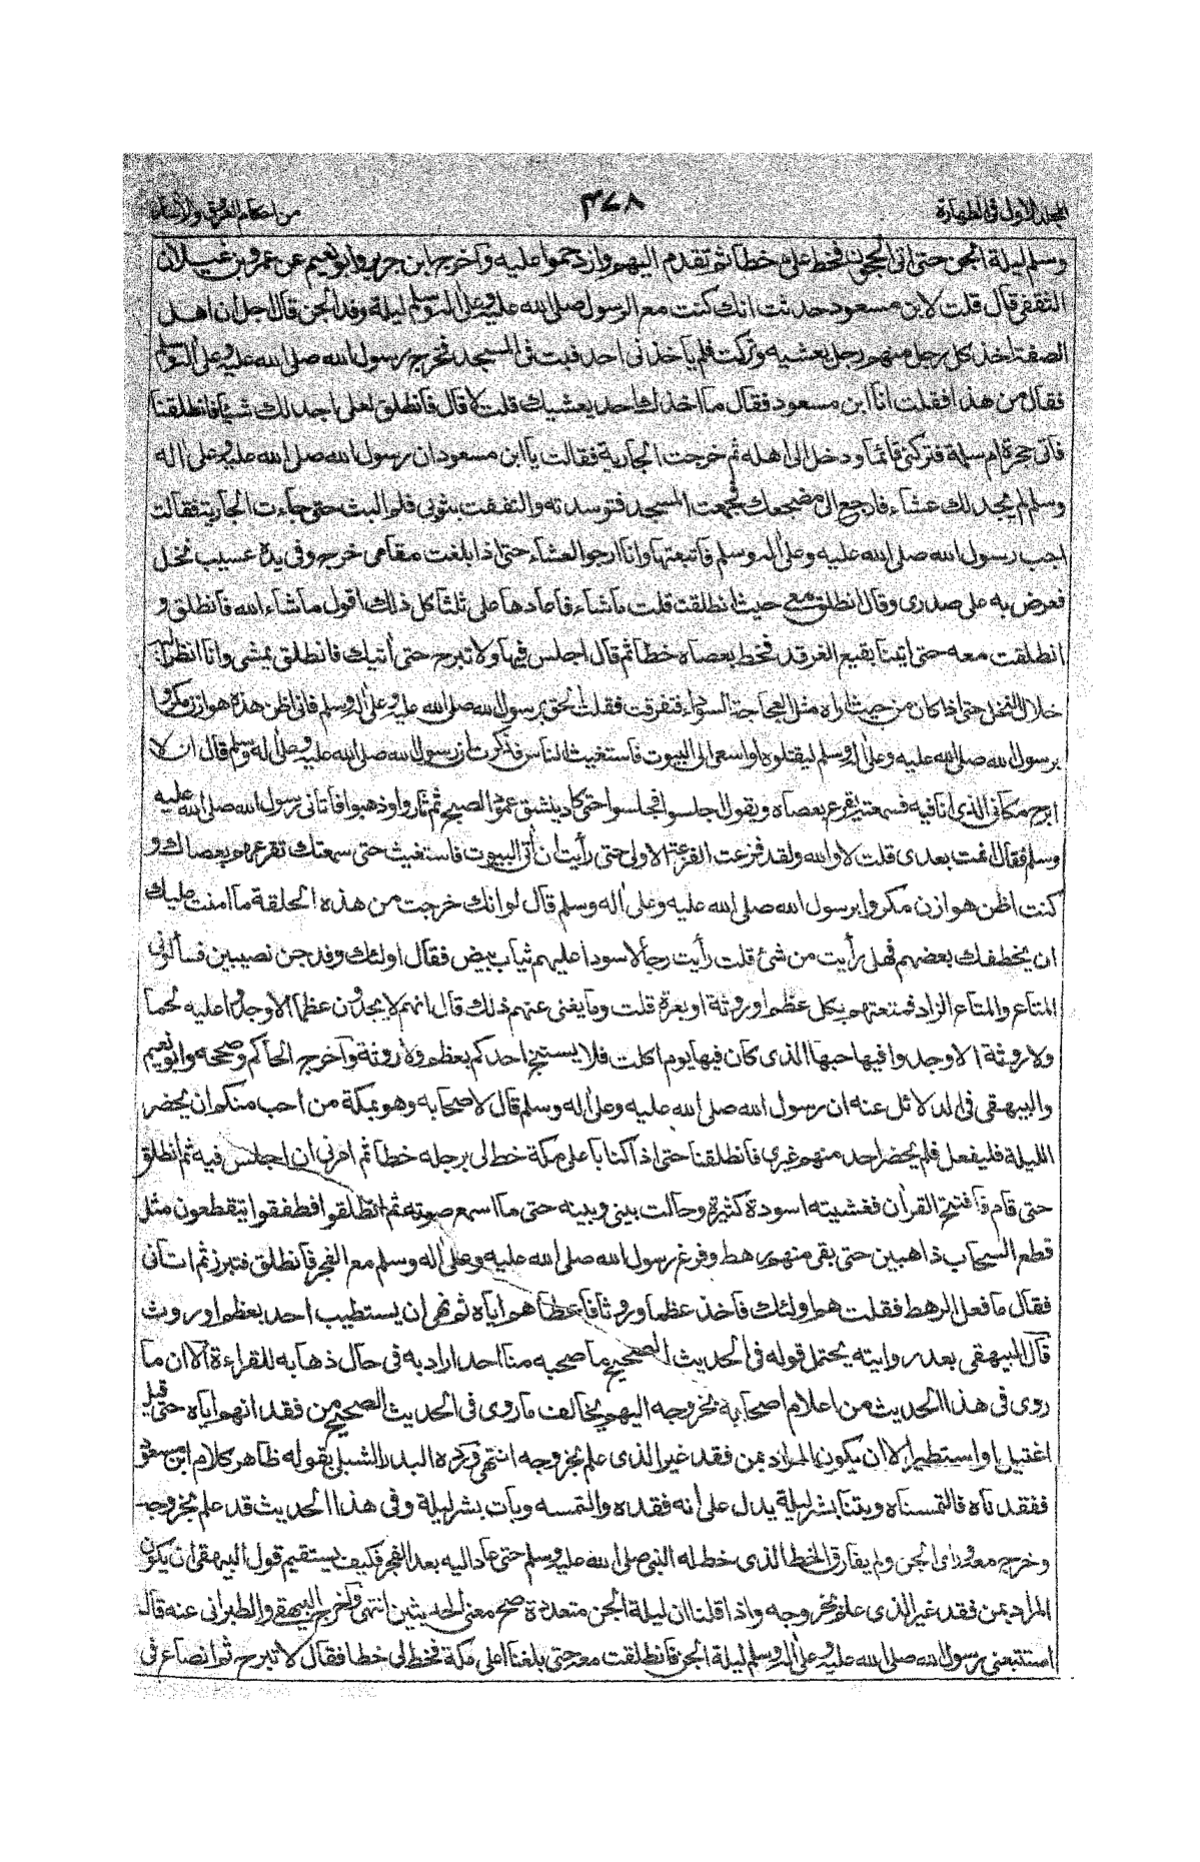 المجلد الاول في الطهارة ٣٧٨ من احكام العرق والأسار
وسلم ليلة الجن حتى اتى الحجون فخط على خطا ثم تقدم اليهم وازدحموا عليه وآخرج ابن جرير وابو نعيم عن عمرو بن غيلان
الثقفي قال قلت لابن مسعود حدثت انك كنت مع الرسول صلى الله عليه وعلى اله وسلم ليلة وفد الجن قال اجل ان اهل
الصفة اخذ كل رجل منهم رجل يعشيه وتركت فلم ياخذني احد فبت في المسجد فخرج رسول الله صلى الله عليه وعلى اله وسلم
فقال من هذا فقلت انا ابن مسعود فقال ما اخذك احد يعشيك قلت لا قال فانطلق لعلى اجد لك شيئا فانطلقنا
فاتى حجرة ام سلمة فتركني قائما ودخل الى اهله ثم خرجت الجارية فقالت يا ابن مسعود ان رسول الله صلى الله عليه وعلى اله
وسلم لم يجد لك عشاء فارجع الى مضجعك فجمعت المسجد فتوسدته والتففت بثوبي فلم البث حتى جاءت الجارية فقالت
اجب رسول الله صلى الله عليه وعلى اله وسلم فاتبعتها وانا ارجو العشاء حتى اذا بلغت مقامى خرج وفي يده عسيب نخل
فعرض به على صدرى وقال انطلق معي حيث انطلقت قلت ما شاء فاعادها على ثلثا كل ذلك اقول ما شاء الله فانطلق و
انطلقت معه حتى اتينا بقيع الغرقد فخط بعصاه خطا ثم قال اجلس فيها ولا تبرح حتى أتيك فانطلق يمشي وانا انظر اليه
خلال النخل حتى اذا كان من حيث اراه مثل العجاجة السوداء فتفرقت فقلت الحق برسول الله صلى الله عليه وعلى اله وسلم فاني اظن هذه هوازن مكروا
برسول الله صلى الله عليه وعلى اله وسلم ليقتلوه او اسعى الى البيوت فاستغيث الناس فذكرت ان رسول الله صلى الله عليه وعلى اله وسلم قال ان لا
ابرح مكاني الذي انا فيه فسمعته يقرعهم بعصاه ويقول اجلسوا فجلسوا حتى كاد ينشق عمود الصبح ثم ثاروا وذهبوا فأتاني رسول الله صلى الله عليه
وسلم فقال انمت بعدى قلت لا والله ولقد فزعت الفزعة الاولى حتى رأيت ان أتي البيوت فاستغيث حتى سمعتك تقرعهم بعصاك و
كنت اظن هوازن مكروا برسول الله صلى الله عليه وعلى اله وسلم قال لو انك خرجت من هذه الحلقة ما امنت عليك
ان يخطفك بعضهم فهل رأيت من شئ قلت رأيت رجالا سودا عليهم ثياب بيض فقال اولئك وفد جن نصيبين فسألونى
المتاع والمتاع الزاد فمتعتهم بكل عظم او روثة او بعرة قلت وما يغنى عنهم ذلك قال انهم لا يجدون عظما الا وجدوا عليه لحما
ولا روثة الا وجدوا فيها حبها الذى كان فيها يوم اكلت فلا يستنج احدكم بعظم ولا روثة وآخرج الحاكم وصححه وابو نعيم
والبيهقى في الدلائل عنه ان رسول الله صلى الله عليه وعلى اله وسلم قال لاصحابه وهو بمكة من احب منكم ان يحضر
الليلة فليفعل فلم يحضر احد منهم غيرى فانطلقنا حتى اذا كنا باعلى مكة خط لى برجله خطا ثم امرنى ان اجلس فيه ثم انطلق
حتى قام فافتتح القرأن فغشيته اسودة كثيرة وحالت بيني وبينه حتى ما اسمع صوته ثم انطلقوا فطفقوا يتقطعون مثل
قطع السحاب ذاهبين حتى بقى منهم رهط وفرغ رسول الله صلى الله عليه وعلى اله وسلم مع الفجر فانطلق فتبرز ثم اتانى
فقال ما فعل الرهط فقلت هم اولئك فاخذ عظما وروثا فاعطاهم اياه ثم نهى ان يستطيب احد بعظم او روث
قال البيهقى بعد روايته يحتمل قوله في الحديث الصحيح ما صحبه منا احد اراد به في حال ذهابه للقراءة الا ان ما
روى في هذا الحديث من اعلام اصحابه بخروجه اليهم يخالف ما روى في الحديث الصحيح من فقدانهم اياه حتى قيل
اغتيل او استطير الا ان يكون المراد بمن فقد غير الذى علم بخروجه انتهى ورده البدر الشبلي بقوله ظاهر كلام ابن مسعود
ففقدناه فالتمسناه وبتنا بشر ليلة يدل على أنه فقده والتمسه وبات بشر ليلة وفي هذا الحديث قد علم بخروجه
وخرج معه ورأى الجن ولم يفارق الخط الذى خط له النبي صلى الله عليه وسلم حتى عاد اليه بعد الفجر فكيف يستقيم قول البيهقى ان يكون
المراد بمن فقد غير الذى علم بخروجه واذا قلنا ان ليلة الجن متعددة صح معنى الحديثين انتهى وآخرج البيهقى والطبرانى عنه قال
استتبعنى رسول الله صلى الله عليه وعلى اله وسلم ليلة الجن فانطلقت معه حتى بلغنا اعلى مكة فخط لى خطا فقال لا تبرح ثم انصاع في